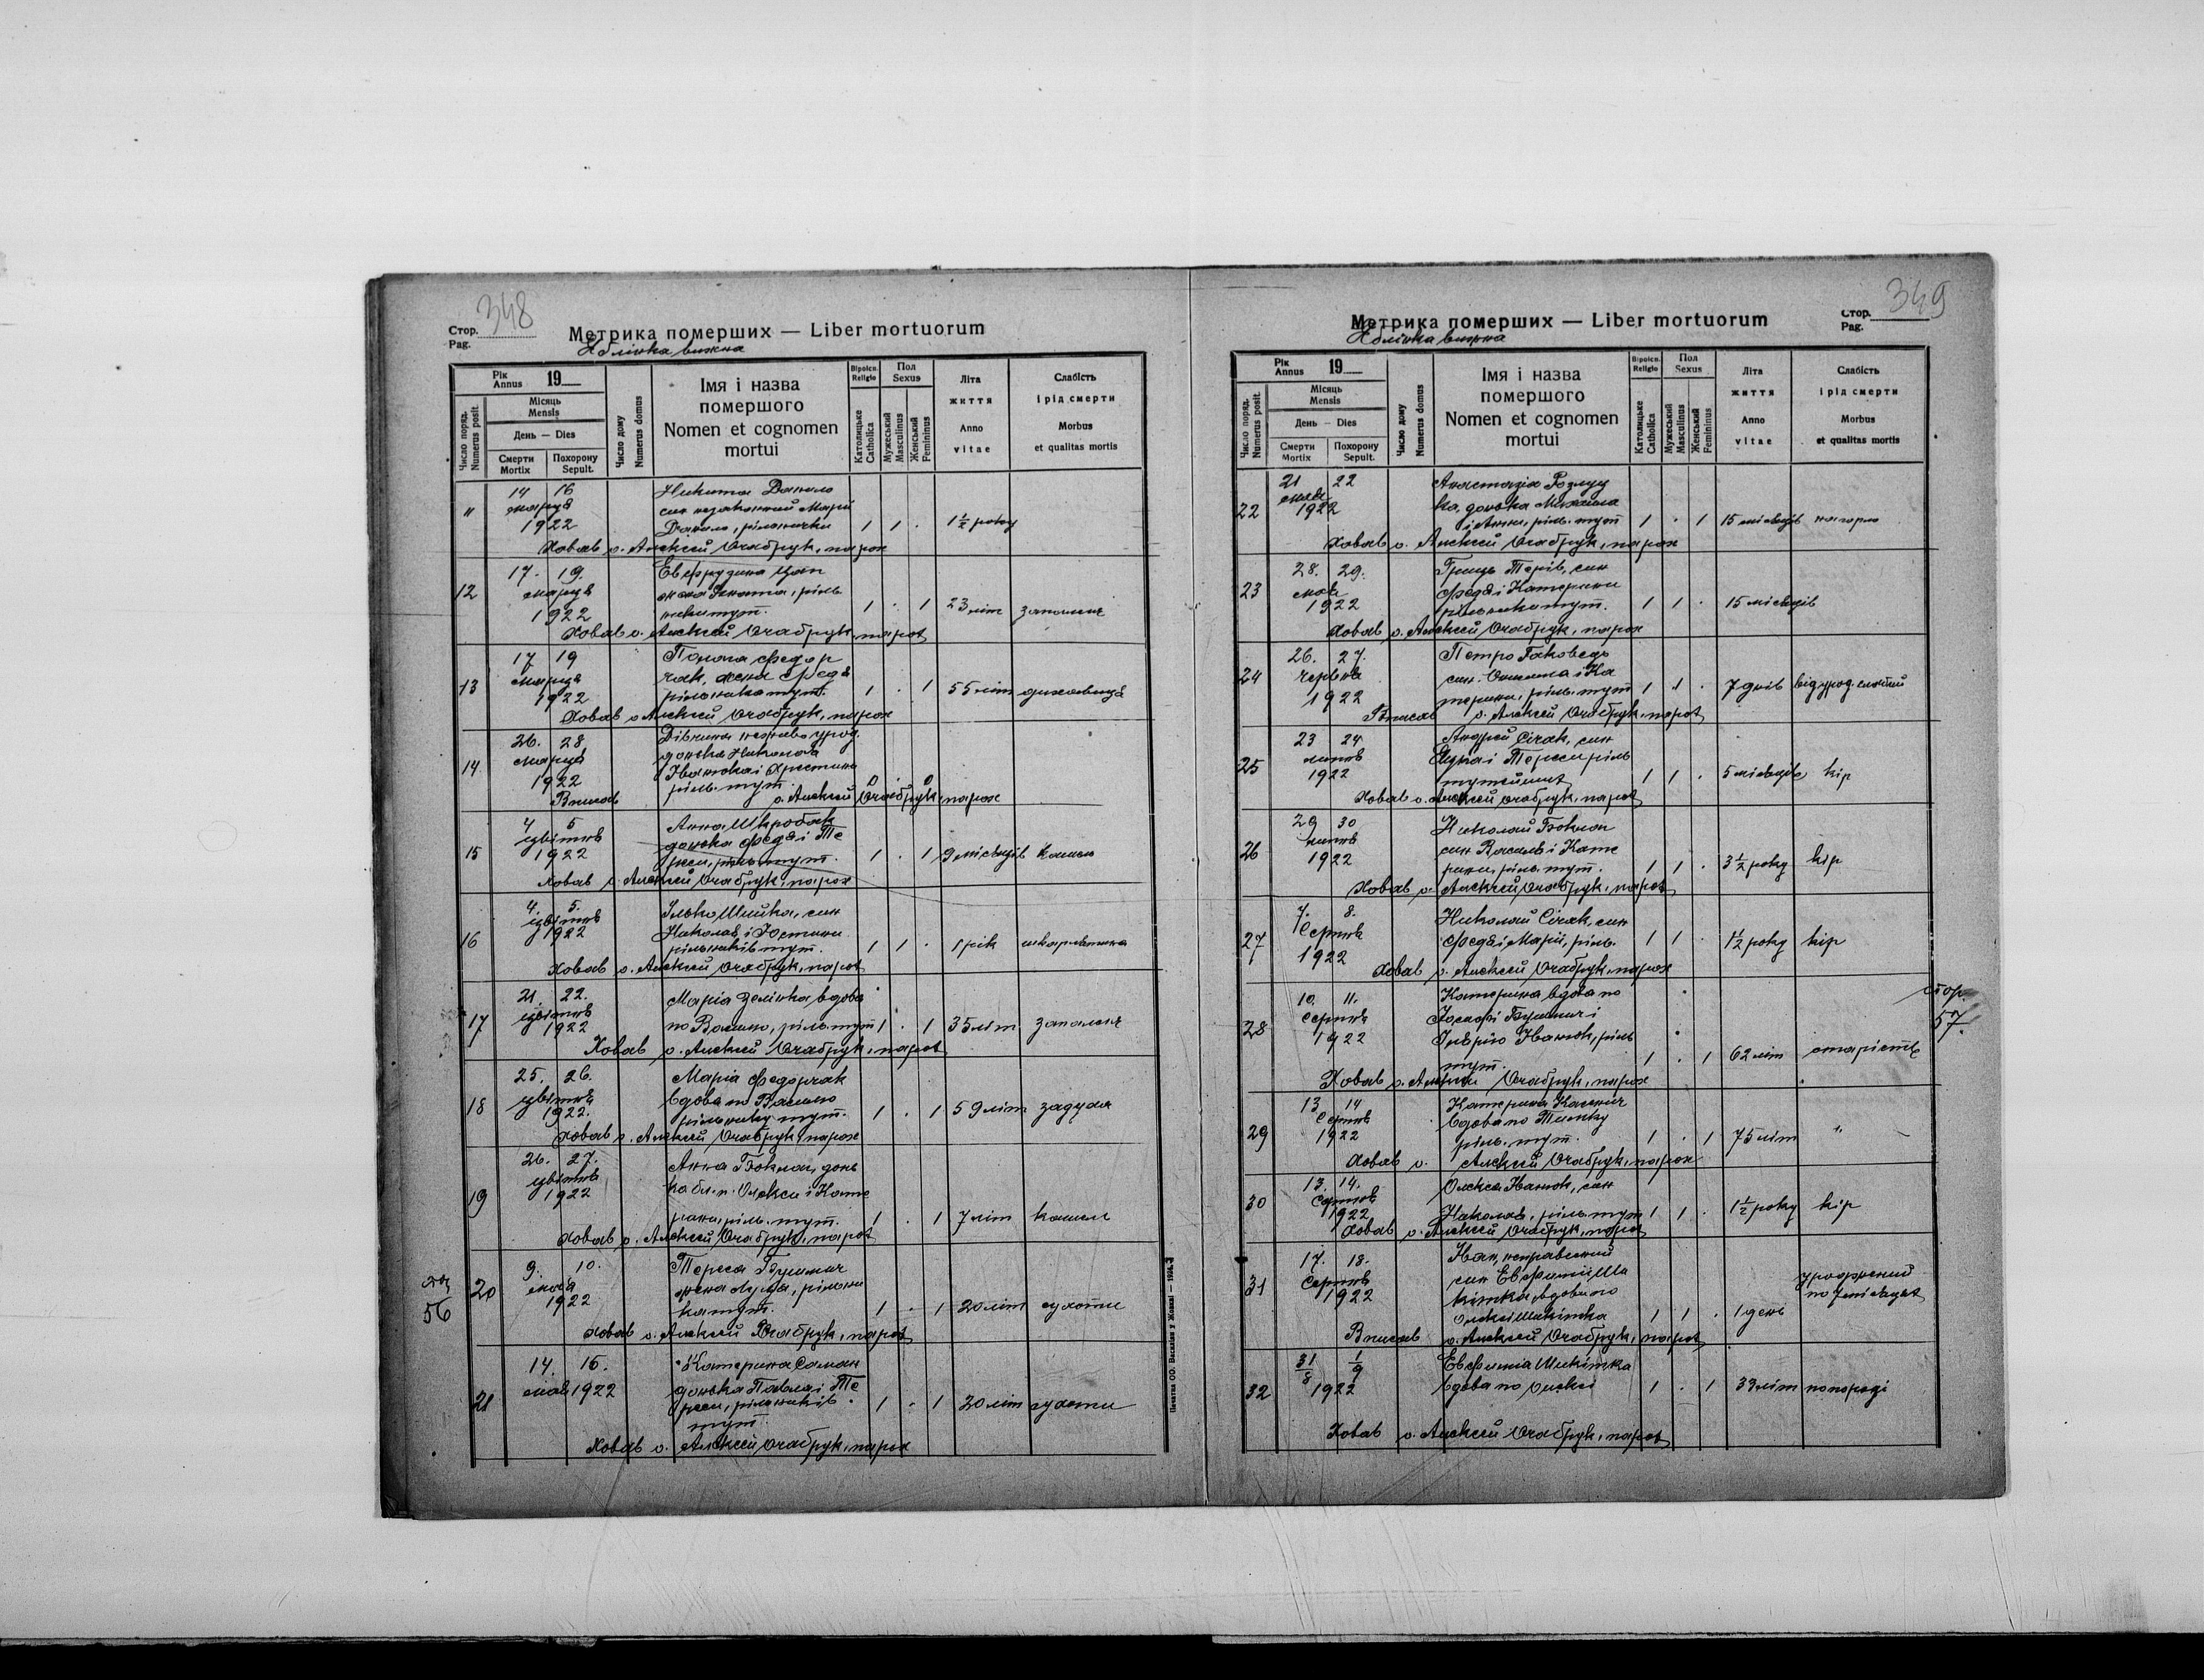 348
Стор.
Pag.
Метрика померших — Liber mortuorum
Яблінка вижна
Рік
Annus
19
Місяць
Mensis
День — Dies
Смерти
Mortix
Похорону
Sepult.
Число поряд.
Numerus posit.
Число дому
Numerus domus
Імя і назва
помершого
Nomen et cognomen
mortui
Віроісп.
Religio
Католицьке
Catholica
Пол
Sexus
Мужеський
Masculinus
Женський
Femininus
Літа
життя
Anno
vitae
Слабість
і рід смерти
Morbus
et qualitas mortis
14 16 Никита Данило
марця син незаконний Марії
11 1922 Данило, рільнички 1 1 . 1½ року
Ховав о. Алексій Очабрук, парох
17. 19. Евфрузина Цап
12 марця жена Ігната, ріль
1922 ника тут. 1 . 1 23 літ запаленє
Ховав о. Алексій Очабрук, парох
17 19 Федор
13 марця чак, жена Федя
1922 рільника тут. 1 . 1 55 літ духавиця
Ховав о. Алексій Очабрук, парох
26. 28 Дівчина нежива урод.
14 марця донька Николая
1922 Іванюка і Христини
ріль. тут.
Вписав о. Алексій Очабрук, парох
4 5 Анна Шкробак
15 цвітня донька Федя і Те
1922 реси, ріль. тут. 1 . 1 9 місяців кашель
Ховав о. Алексій Очабрук, парох
4. 5. Ілько Шийка, син
16 цвітня Николая і Юстини
1922 рільників тут. 1 1 . 1 рік шкарлятина
Ховав о. Алексій Очабрук, парох
21. 22. Марія Зелінка вдова
17 цвітня
1922 по Василю, ріль. тут 1 . 1 35 літ запаленє
Ховав о. Алексій Очабрук, парох
25. 26. Марія Федорчак
18 цвітня вдова по Василю
1922. рільнику тут. 1 . 1 59 літ задуха
Ховав о. Алексій Очабрук, парох
26. 27. Анна Боклач, донь
19 цвітня ка бл. п. Олекси і Кате
1922 рини, ріль. тут. 1 . 1 7 літ кашель
Ховав о. Алексій Очабрук, парох
9. 10. Тереса
56 20 мая жена рільни
1922 ка тут. 1 . 1 20 літ сухоти
Ховав о. Алексій Очабрук, парох
14. 15. Катерина Саман
21 мая 1922 донька Павла і Те
реси, рільників 1 . 1 20 літ сухоти
тут
Ховав о. Алексій Очабрук, парох
Печатня ОО. Василіян у Жовкві — 1924.
349
Стор.
Pag.
Метрика померших — Liber mortuorum
Яблінка вижна
Рік
Annus
19
Місяць
Mensis
День — Dies
Смерти
Mortix
Похорону
Sepult.
Число поряд.
Numerus posit.
Число дому
Numerus domus
Імя і назва
помершого
Nomen et cognomen
mortui
Віроісп.
Religio
Католицьке
Catholica
Пол
Sexus
Мужеський
Masculinus
Женський
Femininus
Літа
життя
Anno
vitae
Слабість
і рід смерти
Morbus
et qualitas mortis
21 22 Анастазія Розлуц
22 мая ка, донька Михайла
1922 і Анни, ріль. тут 1 . 1 15 місяців на горло
Ховав о. Алексій Очабрук, парох
28. 29. Гриць Терів, син
23 мая Федя і Катерини
1922 рільника тут. 1 1 . 15 місяців
Ховав о. Алексій Очабрук, парох
26. 27. Петро
24 червня син і Ка
1922 терини, ріль. тут 1 1 . 7 днів від урод.
Вписав о. Алексій Очабрук, парох
23 24 Андрей Січак, син
25 липня Яцка і Тереси ріль
1922 тутейших 1 1 . 5 місяців кір
Ховав о. Алексій Очабрук, парох
29 30 Николай Боклач
26 липня син Василя і Кате
1922 рини, ріль. тут. 1 1 . 3½ року кір
Ховав о. Алексій Очабрук, парох
7. 8. Николай Січак, син
27 Серпня Федя і Марії, ріль. 1 1 . 1½ року кір
1922
Ховав о. Алексій Очабрук, парох
10. 11. Катерина вдова по стор.
28 Серпня Йосифі і 57.
1922 Іванюк, ріль
тут. 1 . 1 62 літ старість
Ховав о. Алексій Очабрук, парох
13 14 Катерина
29 Серпня вдова по Тимку
1922 ріль. тут. 1 . 1 75 літ "
Ховав о. Алексій Очабрук, парох
13. 14. Олекса Іванюк, син
30 Серпня
1922 Николая, ріль. тут 1 1 . 1½ року кір
Ховав о. Алексій Очабрук, парох
17. 18. Іван, неправесний
31 Серпня син Евфемії Ши
1922 кітка, вдови по уроджений
Олексі Шикітка 1 1 . 1 день по 7 місяцях
Вписав о. Алексій Очабрук, парох
31/8 1/9 Евфемія Шикітка
32 1922 вдова по Олексі 1 . 1 39 літ по породі
Ховав о. Алексій Очабрук, парох